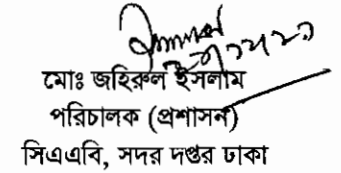 মোঃ জহিরুল ইসলাম
পরিচালক (প্রশাসন)
সিএএবি, সদর দপ্তর ঢাকা